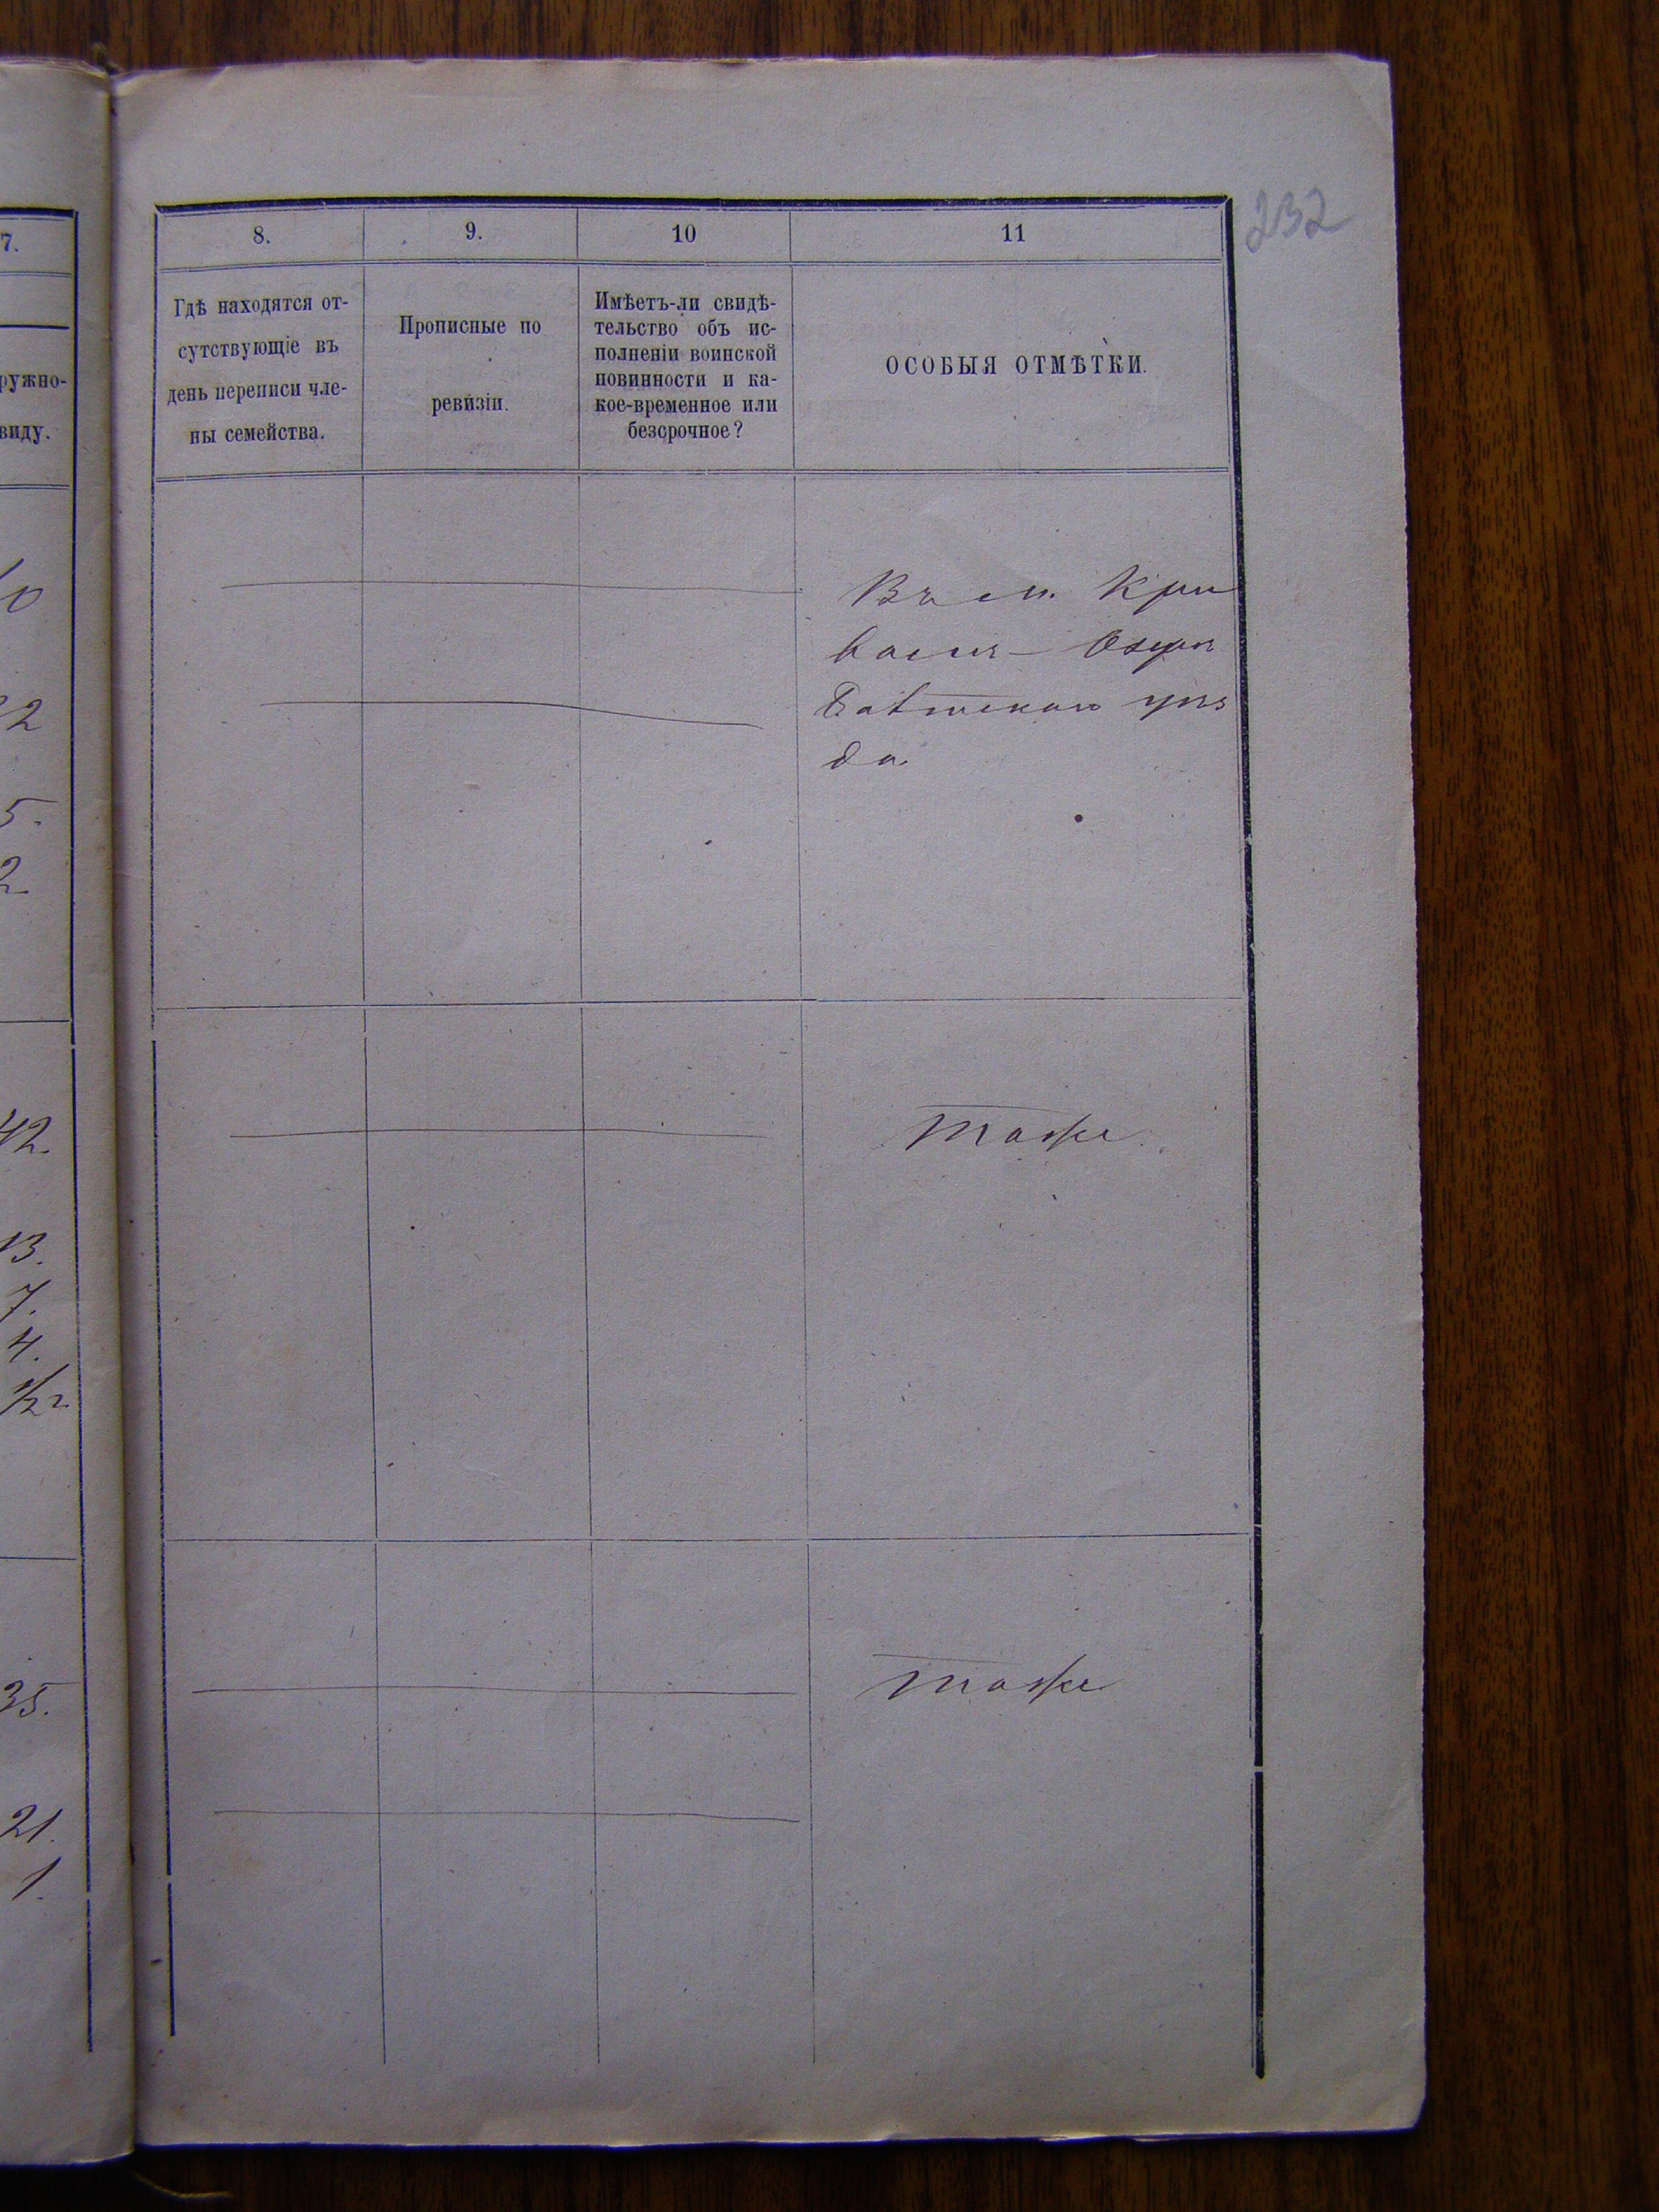 232
7.
ружно-
виду.
10
22
5.
2
42.
13.
7.
4.
1/2 г
35.
21.
1.
8.
9.
10
11
Гдѣ находятся от-
сутствующіе въ
день переписи чле-
ны семейства.
Прописные по
ревизіи.
Имѣетъ-ли свидѣ-
тельство объ ис-
полненіи воинской
повинности и ка-
кое-временное или
безсрочное?
ОСОБЫЯ ОТМѢТКИ.
Въ Кри
Озеръ
уѣз
да
тоже
тоже